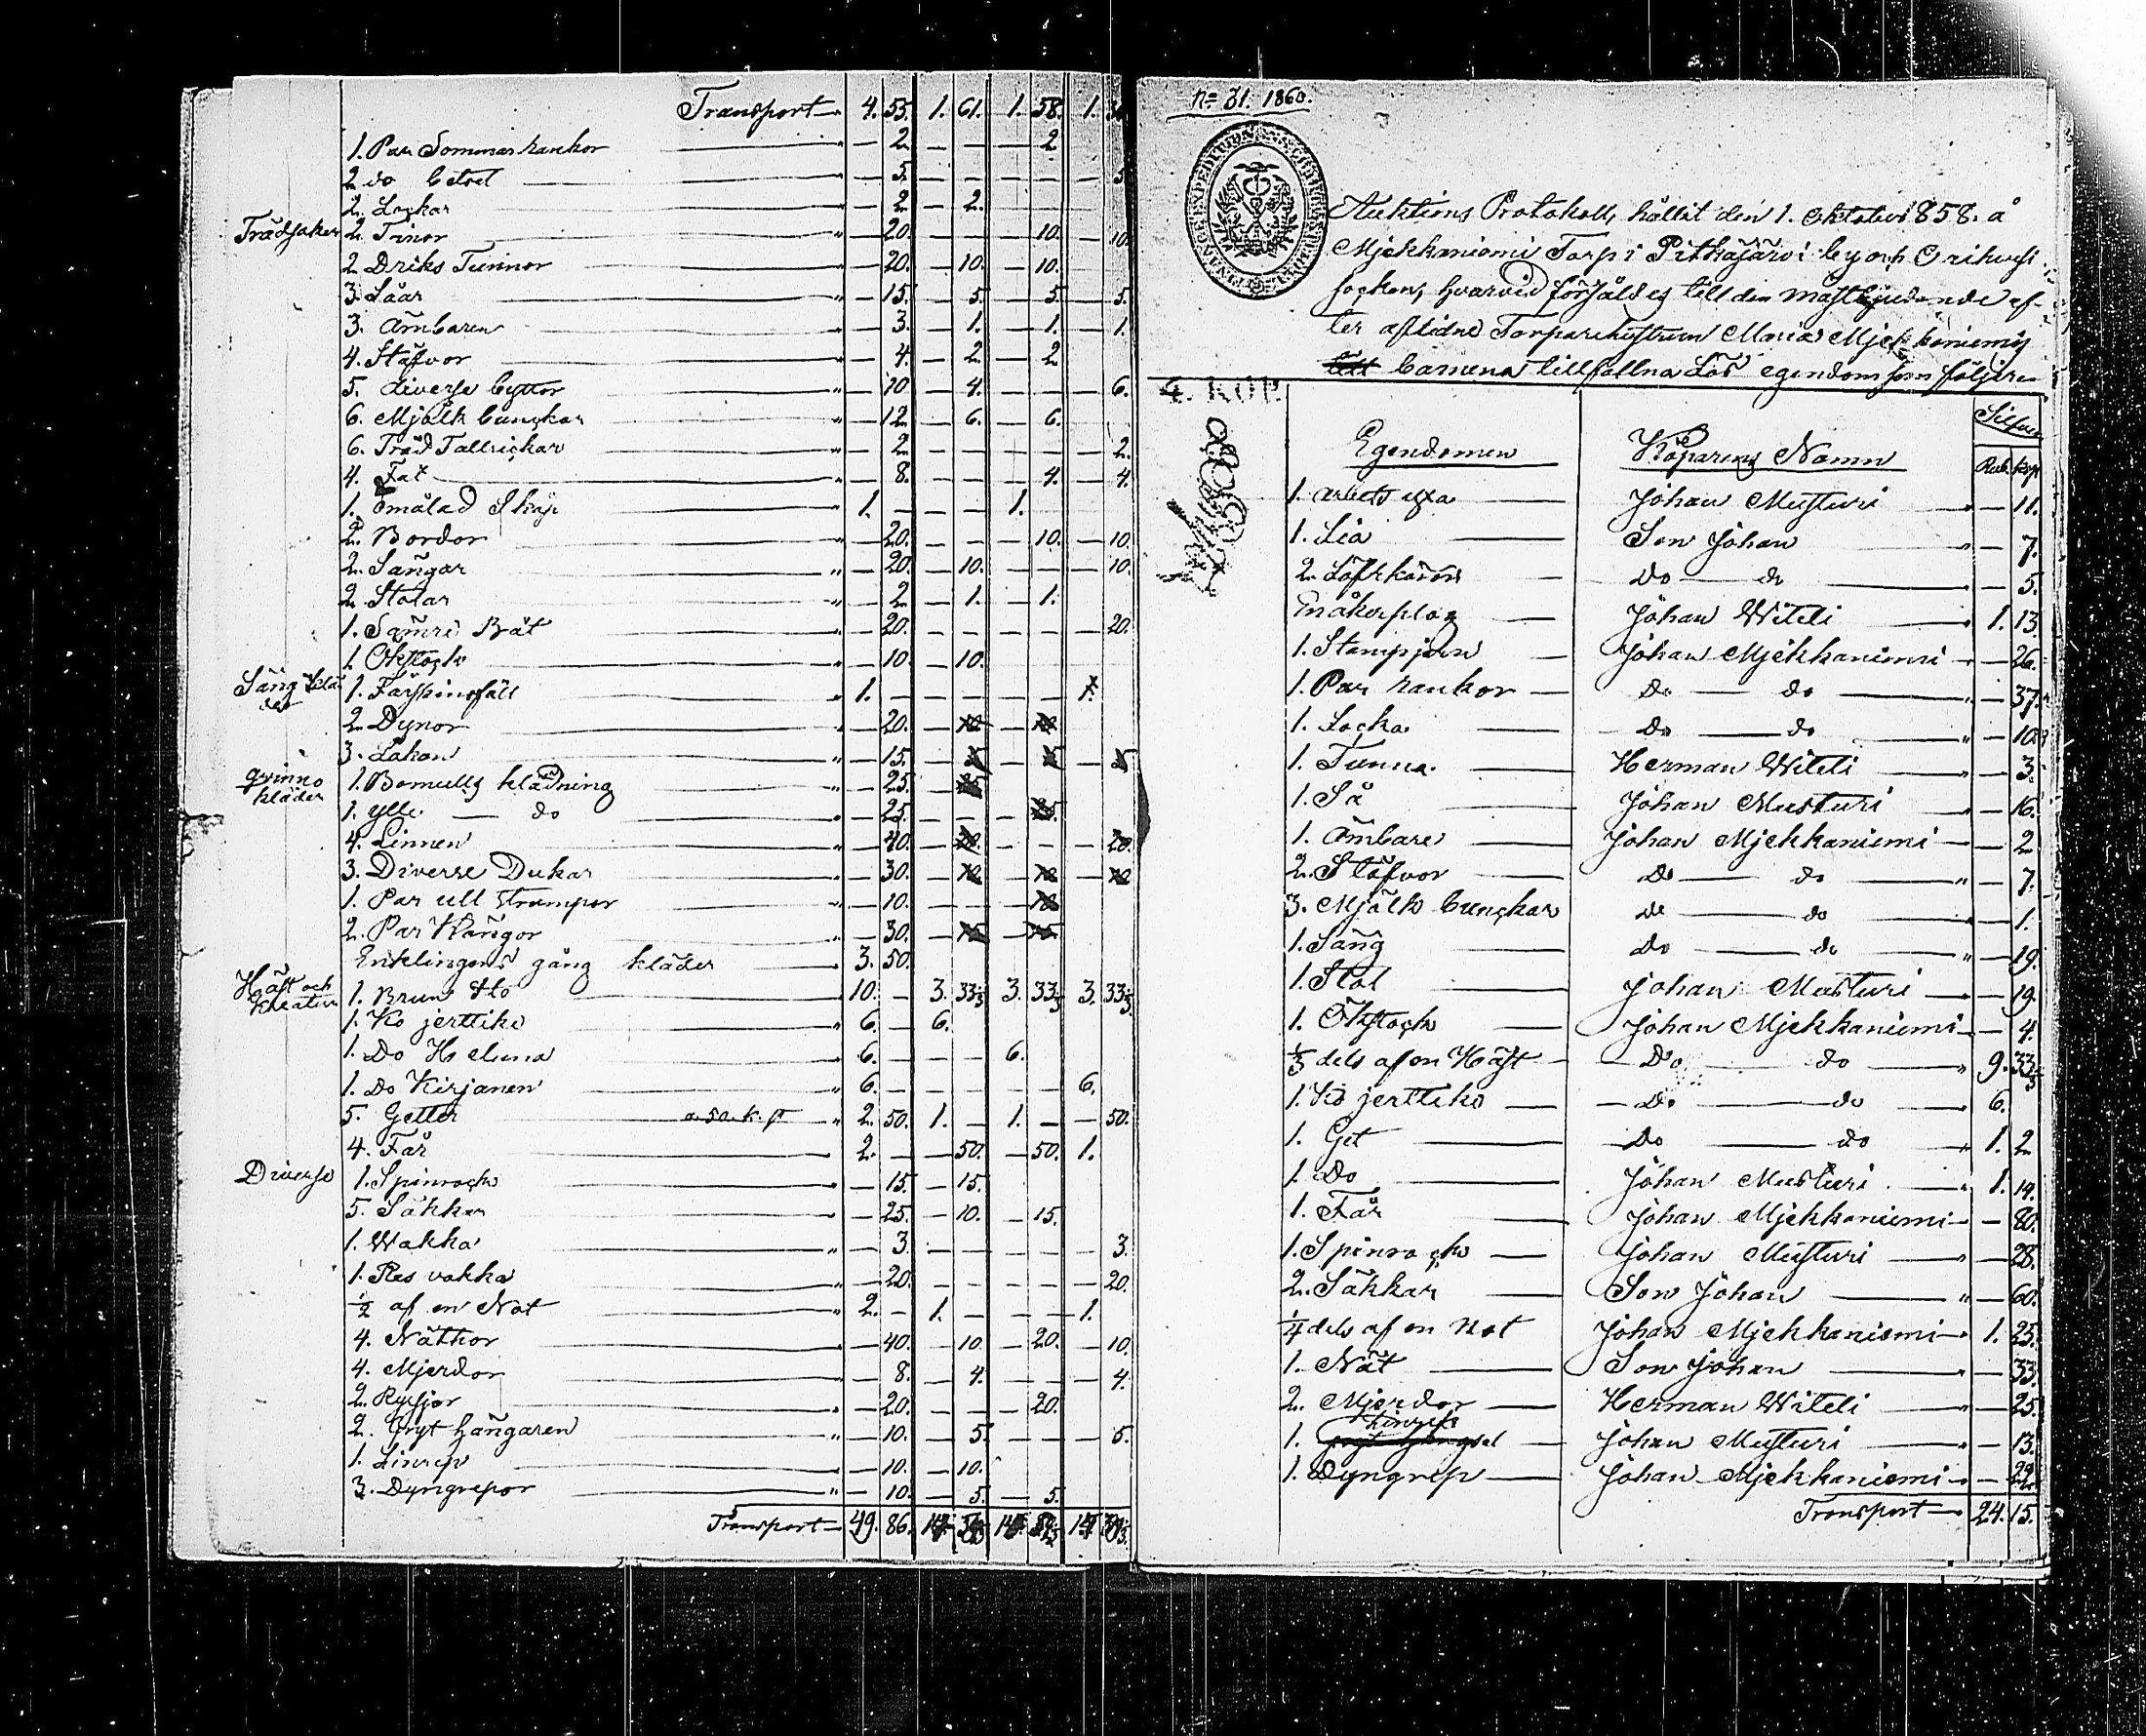 Transport 4. 55. 1. 61. 1. 58. 1.
1. Par Sommar rankor — 2. — — — 2
2 do betsel — 5. — — — — — 5
2. Lockar — 2. — 2.
Trädsaker 2. Tinor — 20. — — — 10. — 10.
2 Driks Tunnor — 20. — 10. — 10.
3. Såar — 15. — 5. — 5. — 5.
3. Ämbaren — 3. — 1. — 1. — 1.
4. Stäfvor — 4. — 2. — 2
5. diverse byttor — 10 — 4. — — — 6.
6. Mjölk bunckar — 12. — 6. — 6.
6. Träd Tallrickar — 2. — — — — — 2.
4. Fat — 8. — — — 4. — 4.
1. omålad Skåp 1. — — — 1.
2. Bordor — 20. — — — 10. — 10.
2. Sängar — 20. — 10. — — — 10.
2. Stolar — 2. — 1. — 1.
1. Sämre Båt — 20. — — — — — 20.
1 Ökstock — 10. — 10.
Säng klä
der 1. Fårskinsfäll 1. — — — — — 1.
2. Dynor — 20. — 10 — 10
3. Lakan — 15. — 5 — 5 — 5
qvinno
kläder 1. Bomulls klädning — 25. — 25
1. ylle — do — 25. — — — 25.
4. Linnen — 40. — 20. — — — 20.
3. Diverse Dukar — 30. — 10 — 10 — 10
1. Par ull strumpor — 10. — — — 10
2. Par Kängor — 30. — 15 — 15
Enklingens gång kläder 3. 50.
Häst och
Kreatur 1. Brun Sto 10. — 3. 33⅓ 3. 33⅓ 3. 33⅓
1. Ko jerttiko 6. — 6.
1. Do Heluna 6. — — — 6.
1. Do Kirjanen 6. — — — — — 6.
5. Getter a 50. k. st 2. 50. 1. — 1. — — 50.
4. Får 2. — — 50. — 50. 1.
Diverse 1. Spinrock — 15. — 15.
5. Säkkar — 25. — 10. — 15.
1. Wakka — 3. — — — — — 3.
1. Res vakka — 20. — — — — — 20.
½ af en Not 2. — 1. — — — 1.
4. Nättor — 40. — 10. — 20. — 10.
4. Mjerdor — 8. — 4. — — — 4.
2. Rysjor — 20. — — — 20.
2. Gryt hängaren — 10. — 5. — — — 5.
1. Linrep — 10. — 10.
3. Dyngrepor — 10. — 5. — 5.
Transport 49. 86.
No 31. 1860.
Auktions Protokoll, hållit den 1. Oktober 1858. å
Mjekkaniemi Torp i Pitkäjärvi by och Orihvesi
socken, hvarvid försåldes till den mastbjudende ef-
ter aflidne Torparehustrun Maria Mjekkaniemis
barnena tillfallna Lös egendom som följer
4. KOP.
Egendomen Köparens Namn Silfver
Rub. kop
1. arbets yxa Johan Musturi — 11.
1. Lia Son Johan — 7.
2. Do do — 5.
Enåkerplog Johan Witeli 1. 13.
1. Stampjern Johan Mjekkaniemi — 26.
1. Par rankor Do do — 37.
1. Locka Do do — 10.
1. Tunna Herman Witeli — 3.
1. Så Johan Musturi — 16.
1. Ämbare Johan Mjekkaniemi — 2
2. Stäfvor Do do — 7.
3. Mjölk bunckar do do — 1.
1. Säng Do do — 19.
1. Stol Johan Musturi — 19.
1. Ökstock Johan Mjekkaniemi — 4.
⅓ dels af en Häst Do do 9. 33⅓
1. Ko jerttiko Do do 6.
1. Get Do do 1. 2
1. Do Johan Musturi 1. 14.
1. Får Johan Mjekkaniemi — 80.
1. Spinrock Johan Musturi — 28.
2. Säkkar Son Johan — 60.
¼ dels af en Not Johan Mjekkaniemi 1. 25.
1. Nät Son Johan — 33.
2. Mjerdor Herman Witeli — 25.
1. Linrep Johan Musturi — 13.
1. Dyngrep Johan Mjekkaniemi — 22.
Transport 24. 15.